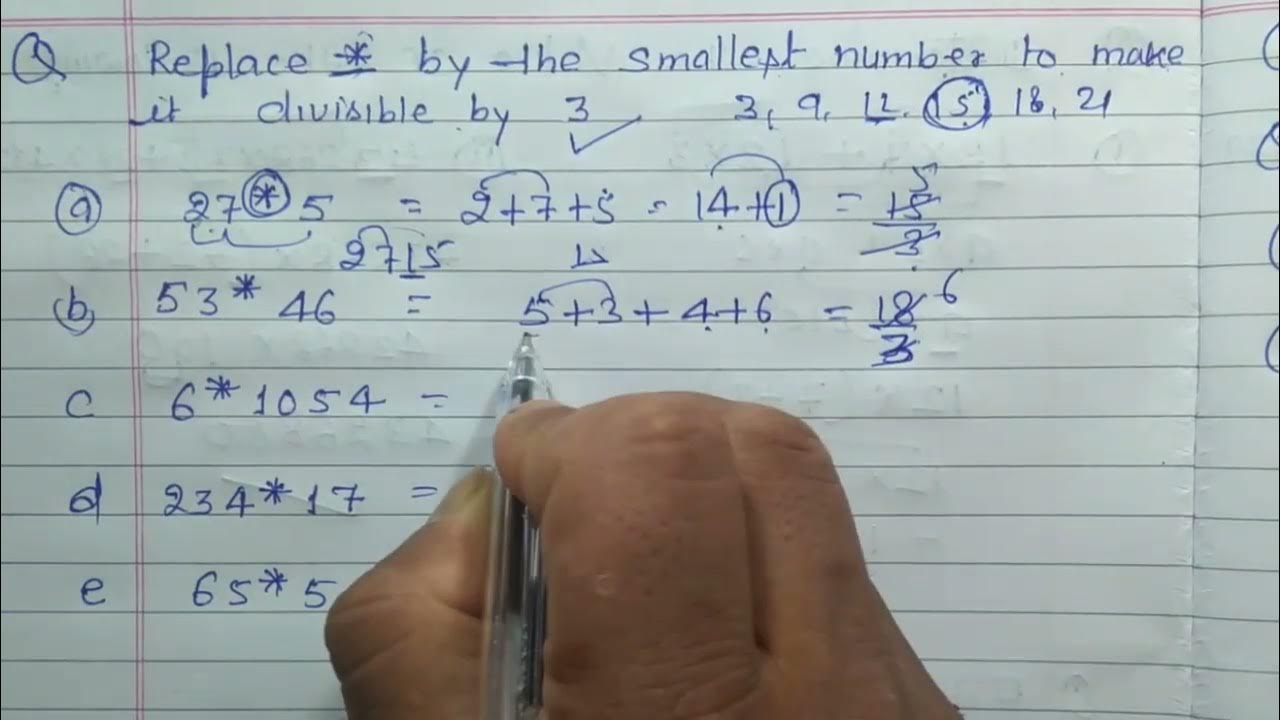 Q Replace * by the smallest number to make
it divisible by 3 ✓ 3, 9, 12, 15, 18, 21
a 27*5 = 2+7+5 = 14+1 = 15/3 5
2715
b 53*46 = 5+3+4+6 = 18/3 6
c 6*1054 =
d 234*17 =
e 65*5